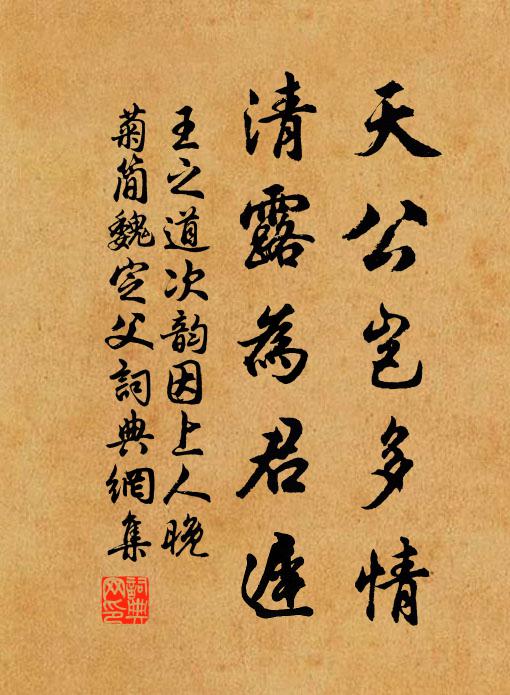 天公豈多情
清露為君遲
王之道次韵因上人晚
菊簡魏定父詞典網集
詞典網印